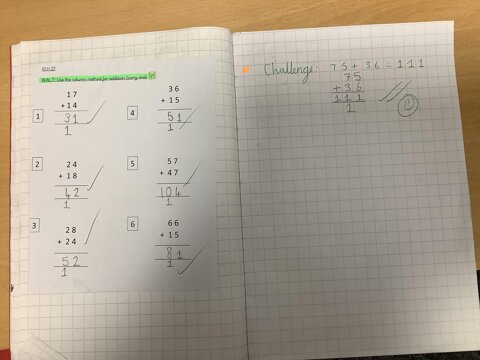 10.11.22
WALT: Use the column method for addition (carry one)
1
17
+14
31
1
2
24
+18
42
1
3
28
+24
52
1
4
36
+15
51
1
5
57
+47
104
1
6
66
+15
81
1
Challenge: 75+36=111
75
+36
111
1